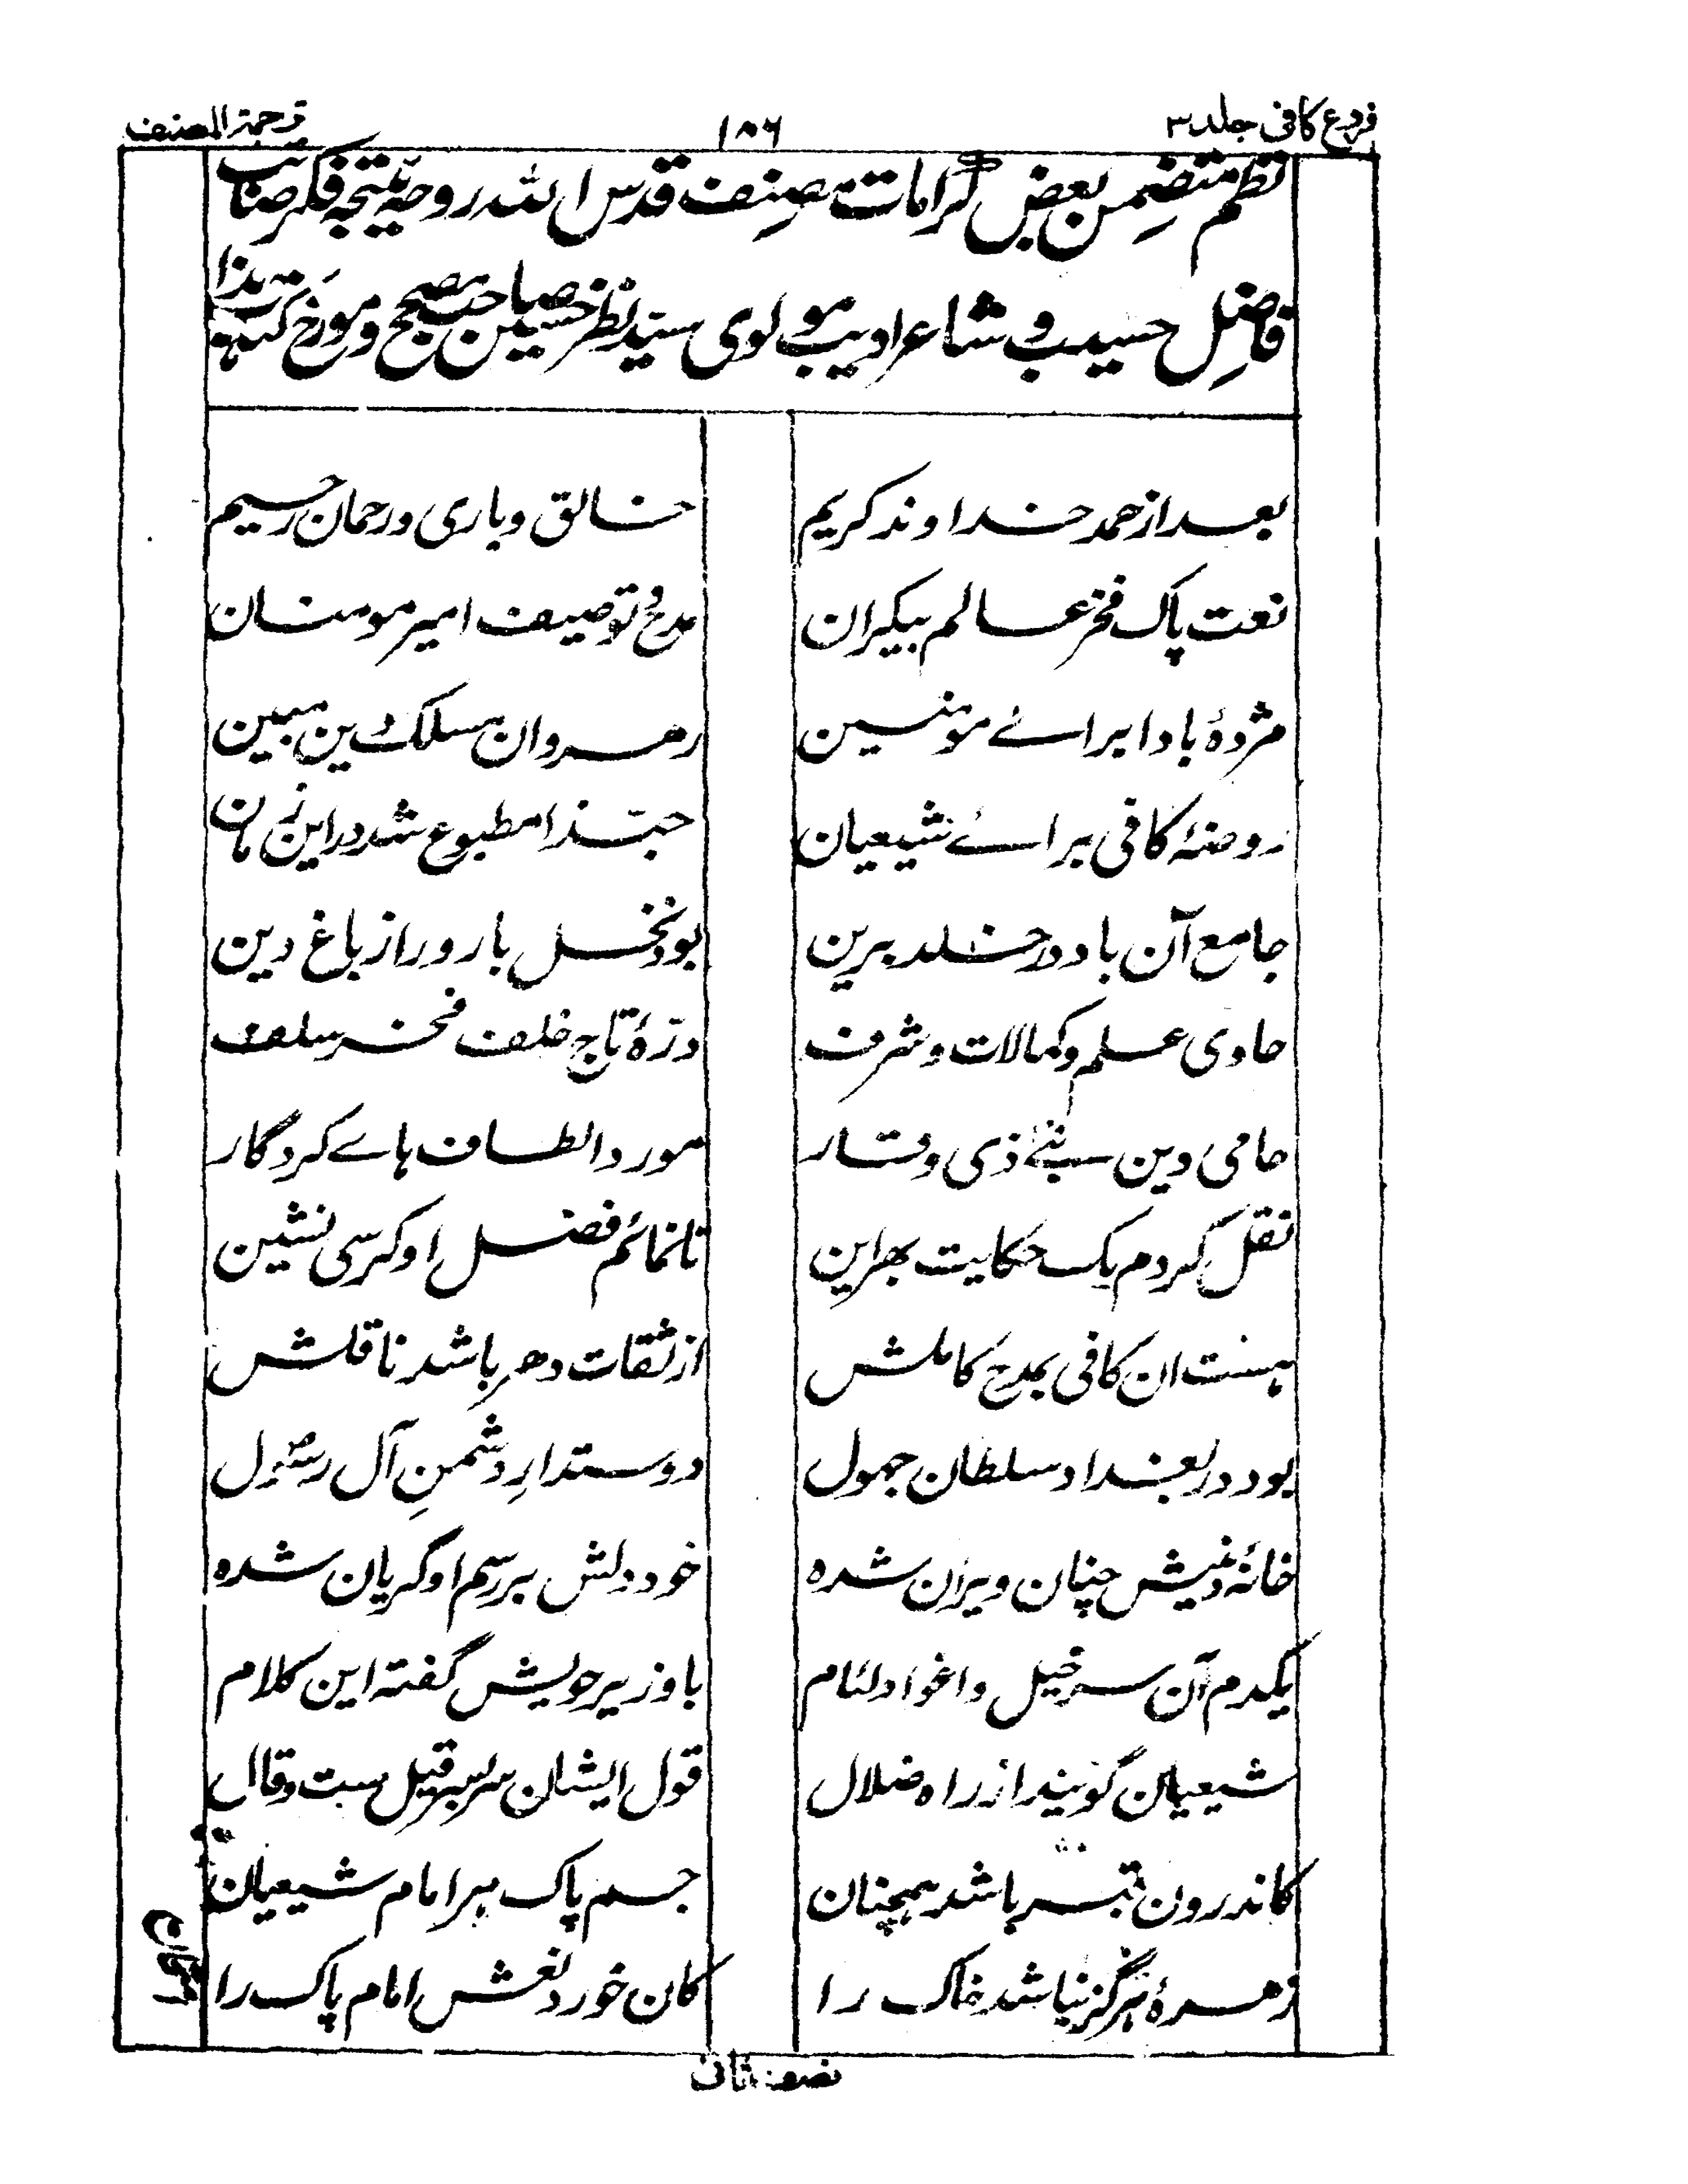 فروع کافی جلد ۳
۱۵۶
ترجمۃ المصنف
نظم متضمن بعض کرامات مصنف قدس اللہ روحہ نتیجۂ فکر صائب
فاضل حسیب و شاعر ادیب مولوی سیّد نظر حسین صاحب مصحح و مورخ کتاب ہذا
بعد از حمد خداوند کریم
خالق و باری و رحمان رحیم
نعت پاک فخر عالم بیکران
مدح و توصیف امیر مومنان
مژدۂ بادا برائے مومنین
رهروان مسلک دین مبین
روضۂ کافی برائے شیعیان
حبّذا مطبوع شد در این زمان
جامع آن باد در خلد برین
بود نخل بارور از باغ دین
حاوی علم و کمالات و شرف
درّۂ تاج خلف فخر سلف
حامی دین نبئے ذی وقار
مورد الطاف ہاے کردگار
نقل کردم یک حکایت بهر این
تا نمائم فضل او کرسی نشین
ہست ان کافی بمدح کاملش
از ثقات دهر باشد ناقلش
بود در بغداد سلطان جہول
دوستدارِ دشمنِ آل رسولؐ
خانۂ دینش چنان ویران شده
خود دلش بر رسم او گریان شده
یکدم آن سر خیل و اغواد لئام
با وزیر خویش گفته این کلام
شیعیان گویند از راه ضلال
قول ایشان سر بسر قیل ست و قال
کاندرون قبر باشد ہمچنان
جسم پاک ہر امام شیعیان
زهرۂ ہرگز نباشد خاک را
کان خورد نعش امام پاک را
نصف ثانی